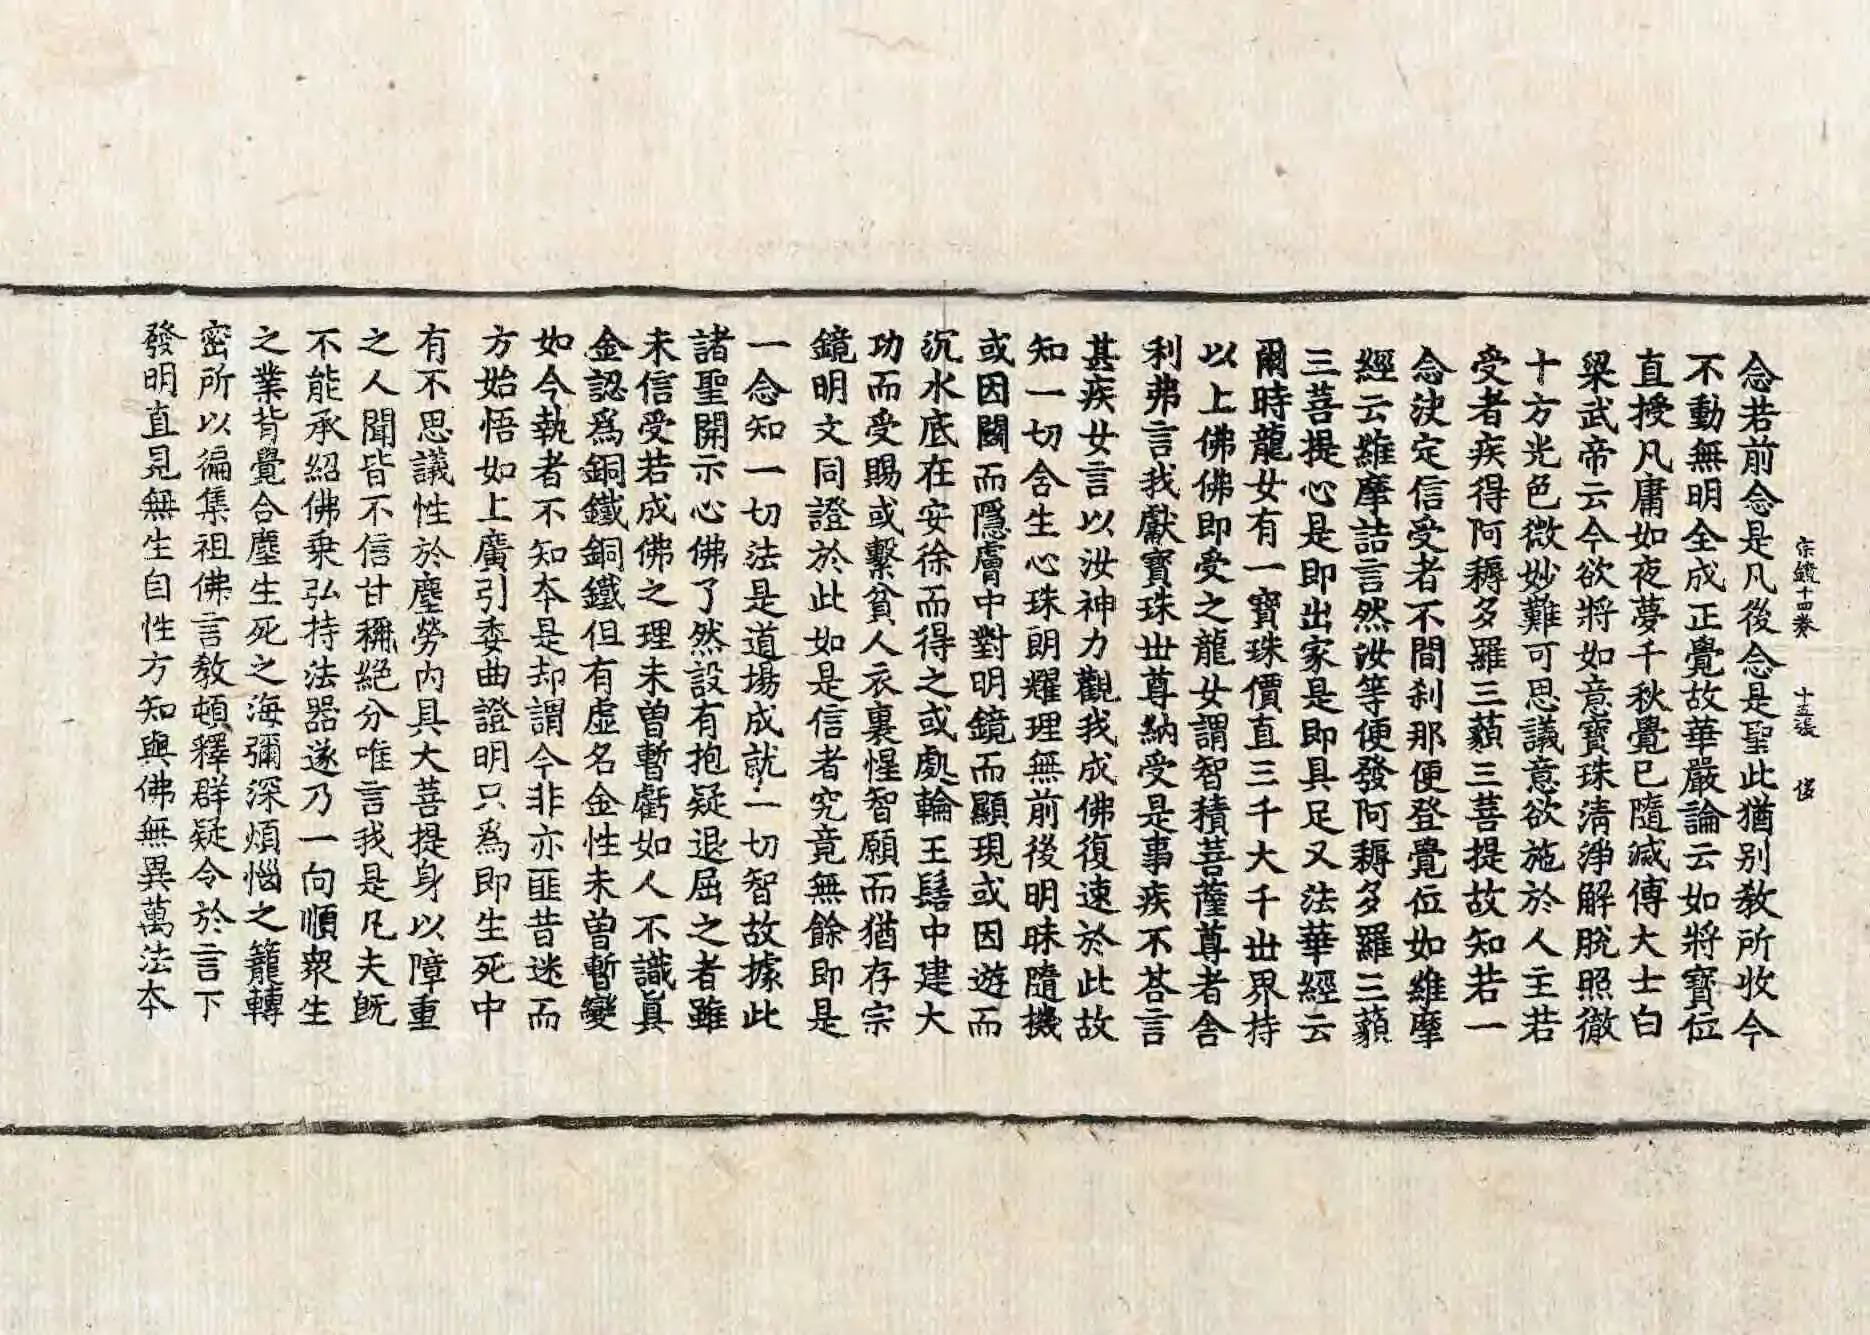 宗鏡十四卷 十五張 俊
念若前念是凡後念是聖此猶别敎所收今
不動無明全成正覺故華嚴論云如將寶位
直授凡庸如夜夢千秋覺已隨滅傅大士白
梁武帝云今欲將如意寶珠淸淨解脫照徹
十方光色微妙難可思議意欲施於人主若
受者疾得阿耨多羅三藐三菩提故知若一
念決定信受者不間刹那便登覺位如維摩
經云維摩詰言然汝等便發阿耨多羅三藐
三菩提心是即出家是即具足又法華經云
爾時龍女有一寶珠價直三千大千世界持
以上佛佛即受之龍女謂智積菩薩尊者舍
利弗言我獻寶珠世尊納受是事疾不荅言
甚疾女言以汝神力觀我成佛復速於此故
知一切含生心珠朗耀理無前後明昧隨機
或因鬪而隱膚中對明鏡而顯現或因遊而
沉水底在安徐而得之或處輪王髻中建大
功而受賜或繫貧人衣裏惺智願而猶存宗
鏡明文同證於此如是信者究竟無餘即是
一念知一切法是道場成就一切智故據此
諸聖開示心佛了然設有抱疑退屈之者雖
未信受若成佛之理未曾暫虧如人不識眞
金認爲銅鐵銅鐵但有虛名金性未曾暫變
如今執者不知夲是却謂今非亦匪昔迷而
方始悟如上廣引委曲證明只爲即生死中
有不思議性於塵勞內具大菩提身以障重
之人聞皆不信甘稱絕分唯言我是凡夫旣
不能承紹佛乗弘持法器遂乃一向順衆生
之業背覺合塵生死之海彌深煩惱之籠轉
密所以徧集祖佛言敎頓釋群疑令於言下
發明直見無生自性方知與佛無異萬法夲